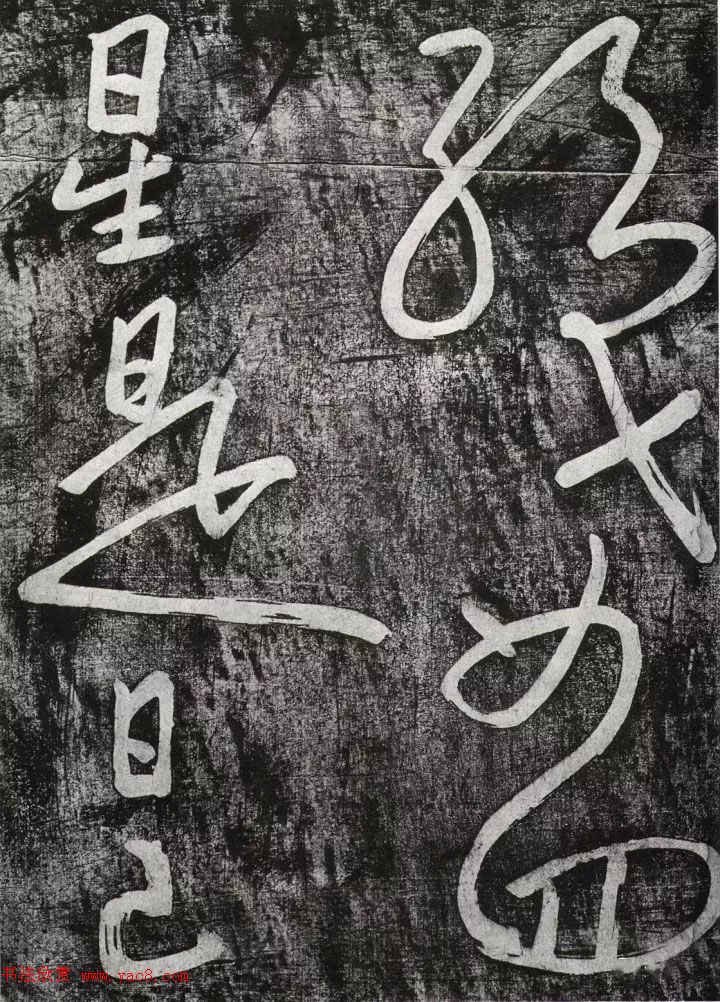 如四
星是日已
书法欣赏 www.yac8.com